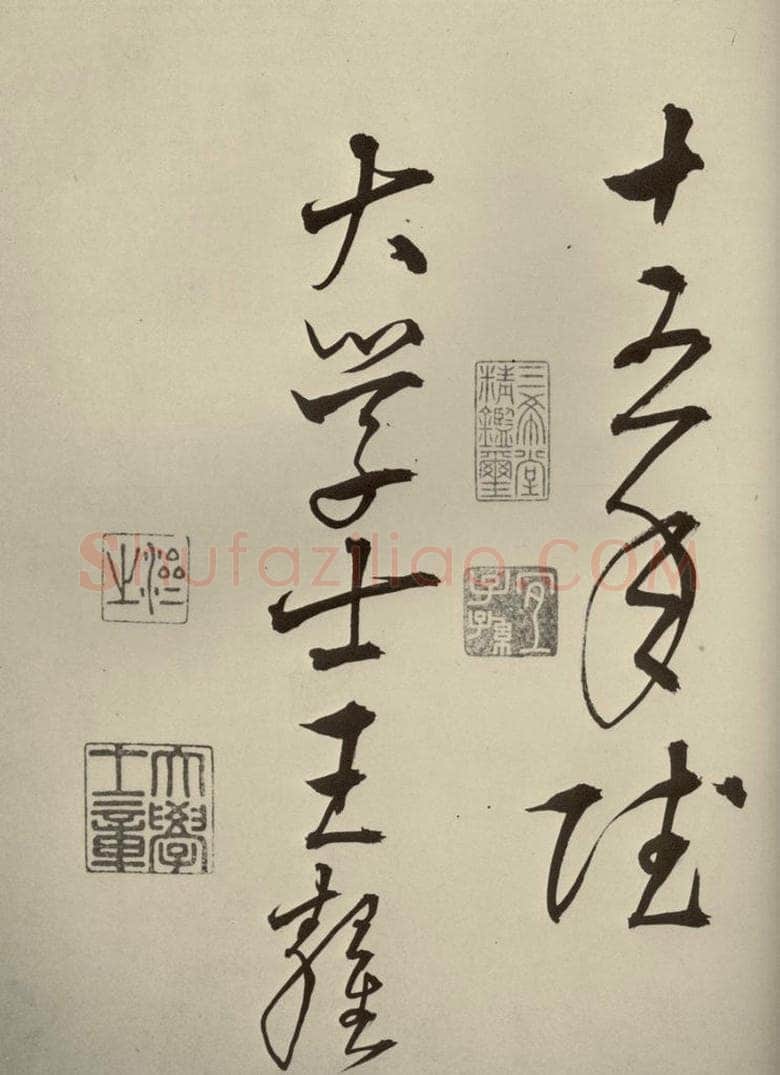 十五年
大学士王鐸
三希堂
精鑑璽
宜
子孫
大學
士章
Shufaziliao.COM